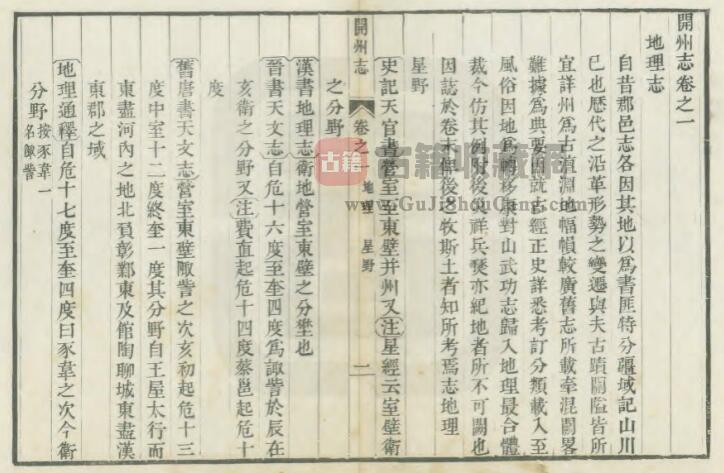 開州志卷之一
地理志
自昔郡邑志各因其地以爲書匪特分疆域記山川
已也歷代之沿革形勢之變遷與夫古蹟關隘皆所
宜詳州爲古澶淵地幅幀較廣舊志所載牽混闕畧
難據爲典要因就古經正史詳悉考訂分類載入至
風俗因地爲轉移康對山武功志歸入地理最合體
裁今仿其例附後與祥兵燹亦紀地者所不可闕也
因誌於卷末俾後之牧斯土者知所考焉志地理
星野
史記天官書營室至東壁并州又注星經云室壁衛
開州志
卷之一
地理 星野
一
之分野
漢書地理志衛地營室東壁之分壄也
晉書天文志自危十六度至奎四度爲諏訾於辰在
亥衛之分野又注費直起危十四度蔡邕起危十
度
舊唐書天文志營室東壁陬訾之次亥初起危十三
度中室十二度終奎一度其分野自王屋太行而
東盡河內之地北負彰鄴東及館陶聊城東盡漢
東郡之域
地理通釋自危十七度至奎四度曰豕韋之次今衛
分野按豕韋一
名陬訾
古籍 古籍收藏网
www.GuJiShouCang.com